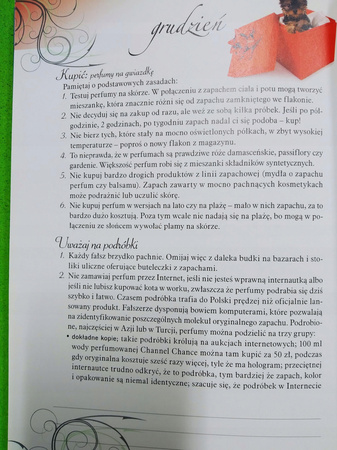 grudzień
Kupić: perfumy na gwiazdkę
Pamiętaj o podstawowych zasadach:
1. Testuj perfumy na skórze. W połączeniu z zapachem ciała i potu mogą tworzyć
mieszankę, która znacznie różni się od zapachu zamkniętego we flakonie.
2. Nie decyduj się na zakup od razu, ale weź ze sobą kilka próbek. Jeśli po pół-
godzinie, 2 godzinach, po tygodniu zapach nadal ci się podoba – kup!
3. Nie bierz tych, które stały na mocno oświetlonych półkach, w zbyt wysokiej
temperaturze – poproś o nowy flakon z magazynu.
4. To nieprawda, że w perfumach są prawdziwe róże damasceńskie, passiflory czy
gardenie. Większość perfum robi się z mieszanki składników syntetycznych.
5. Nie kupuj bardzo drogich produktów z linii zapachowej (mydła o zapachu
perfum czy balsamu). Zapach zawarty w mocno pachnących kosmetykach
może podrażnić lub uczulić skórę.
6. Nie kupuj perfum w wersjach na lato czy na plażę – mało w nich zapachu, za to
bardzo dużo kosztują. Poza tym wcale nie nadają się na plażę, bo mogą w po-
łączeniu ze słońcem wywołać plamy na skórze.
Uważaj na podróbki
1. Każdy fałsz brzydko pachnie. Omijaj więc z daleka budki na bazarach i sto-
liki uliczne oferujące buteleczki z zapachami.
2. Nie zamawiaj perfum przez Internet, jeśli nie jesteś wprawną internautką albo
jeśli nie lubisz kupować kota w worku, zwłaszcza że perfumy podrabia się dziś
szybko i łatwo. Czasem podróbka trafia do Polski prędzej niż oficjalnie lan-
sowany produkt. Fałszerze dysponują bowiem komputerami, które pozwalają
na zidentyfikowanie poszczególnych molekuł oryginalnego zapachu. Podrobio-
ne, najczęściej w Azji lub w Turcji, perfumy można podzielić na trzy grupy:
• dokładne kopie; takie podróbki królują na aukcjach internetowych; 100 ml
wody perfumowanej Channel Chance można tam kupić za 50 zł, podczas
gdy oryginalna kosztuje sześć razy więcej, tyle że ma hologram; przeciętnej
internautce trudno odkryć, że to podróbka, tym bardziej że zapach, kolor
i opakowanie są niemal identyczne; szacuje się, że podróbek w Internecie